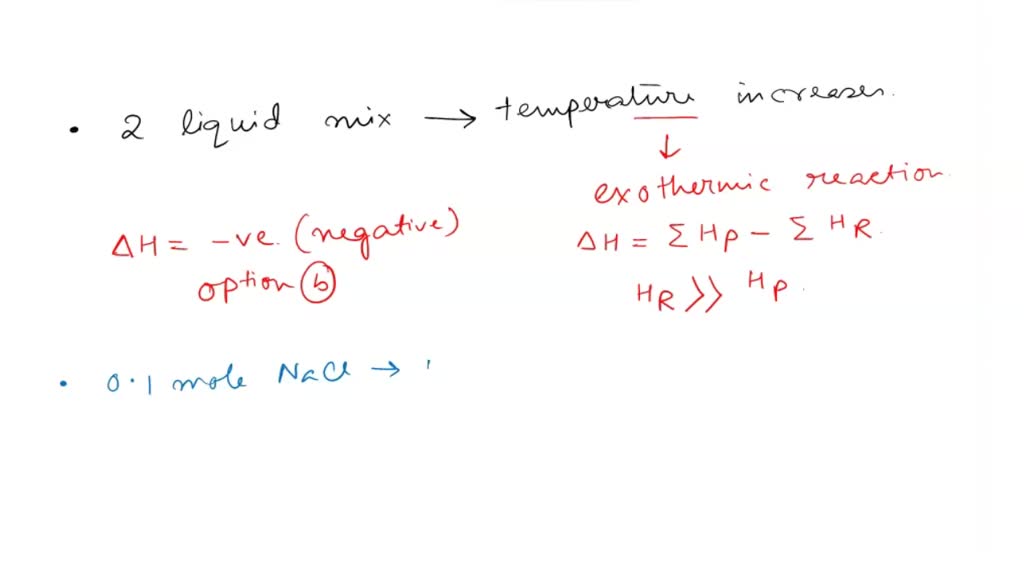 • 2 liquid mix → temperature increases.
↓
exothermic reaction.
ΔH = -ve (negative)
option ⓑ
ΔH = Σ HP - Σ HR.
HR >> HP.
• 0.1 mole NaCl → 1